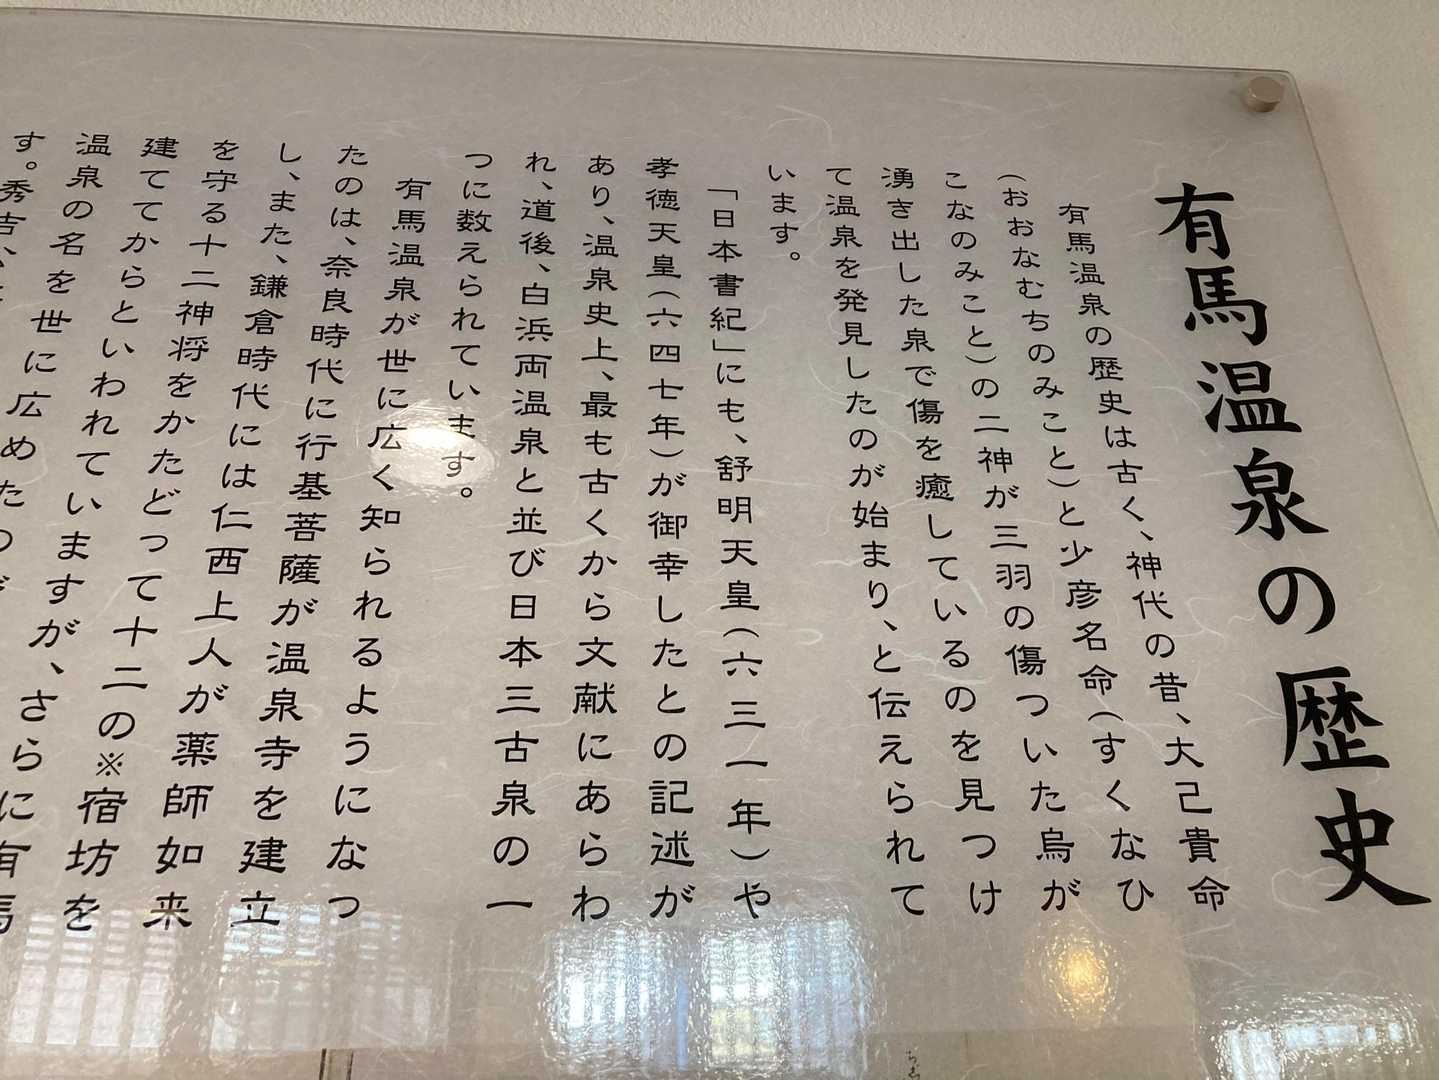 有馬温泉の歴史
有馬温泉の歴史は古く、神代の昔、大己貴命
(おおなむちのみこと)と少彦名命(すくなひ
こなのみこと)の二神が三羽の傷ついた烏が
湧き出した泉で傷を癒しているのを見つけ
て温泉を発見したのが始まり、と伝えられて
います。
「日本書紀」にも、舒明天皇(六三一年)や
孝徳天皇(六四七年)が御幸したとの記述が
あり、温泉史上、最も古くから文献にあらわ
れ、道後、白浜両温泉と並び日本三古泉の一
つに数えられています。
有馬温泉が世に広く知られるようになっ
たのは、奈良時代に行基菩薩が温泉寺を建立
し、また、鎌倉時代には仁西上人が薬師如来
を守る十二神将をかたどって十二の※宿坊を
建ててからといわれていますが、さらに有馬
温泉の名を世に広めたの
す。秀吉